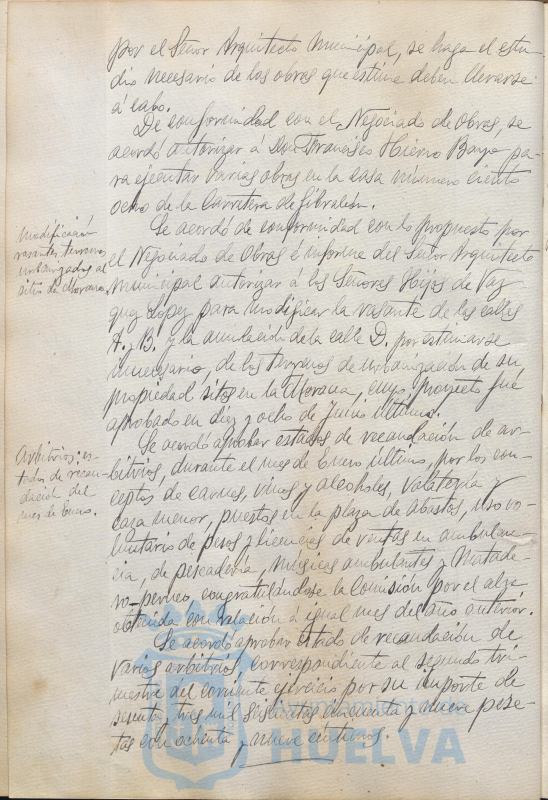 por el Señor Arquitecto Municipal, se haga el estu-
dio necesario de las obras que estime deben llevarse
á cabo.
De conformidad con el Negociado de Obras, se
acordó autorizar á Don Francisco Hierro Bayo pa-
ra ejecutar varias obras en la casa número ciento
ocho de la Carretera de Gibraleon.
Modificación
rasantes terrenos
urbanizados al
sitio de Morana.
Se acordó de conformidad con lo propuesto por
el Negociado de Obras é informe del Señor Arquitecto
Municipal autorizar á los Señores Hijos de Vaz-
quez Lopez para modificar la rasante de las calles
A. y B. y la anulación de la calle D. por estimarse
innecesario, de los terrenos de urbanización de su
propiedad sitos en la Morana, cuyo proyecto fué
aprobado en diez y ocho de Junio último.
Arbitrios: es-
tados de recau-
dación del
mes de Enero.
Se acordó aprobar estados de recaudación de ar-
bitrios, durante el mes de Enero último, por los con-
ceptos de carnes, vinos y alcoholes, volatería y
caza menor, puestos en la plaza de Abastos, uso vo-
luntario de pesos y licencias de ventas en ambulan-
cia, de pescadería, músicos ambulantes y Matade-
ro-porcino, congratulándose la Comisión por el alza
obtenida con relación á igual mes del año anterior.
Se acordó aprobar estado de recaudación de
varios arbitrios, correspondiente al segundo tri-
mestre del corriente ejercicio por su importe de
sesenta y tres mil seiscientas cincuenta y nueve pese-
tas con ochenta y nueve centimos.
HUELVA